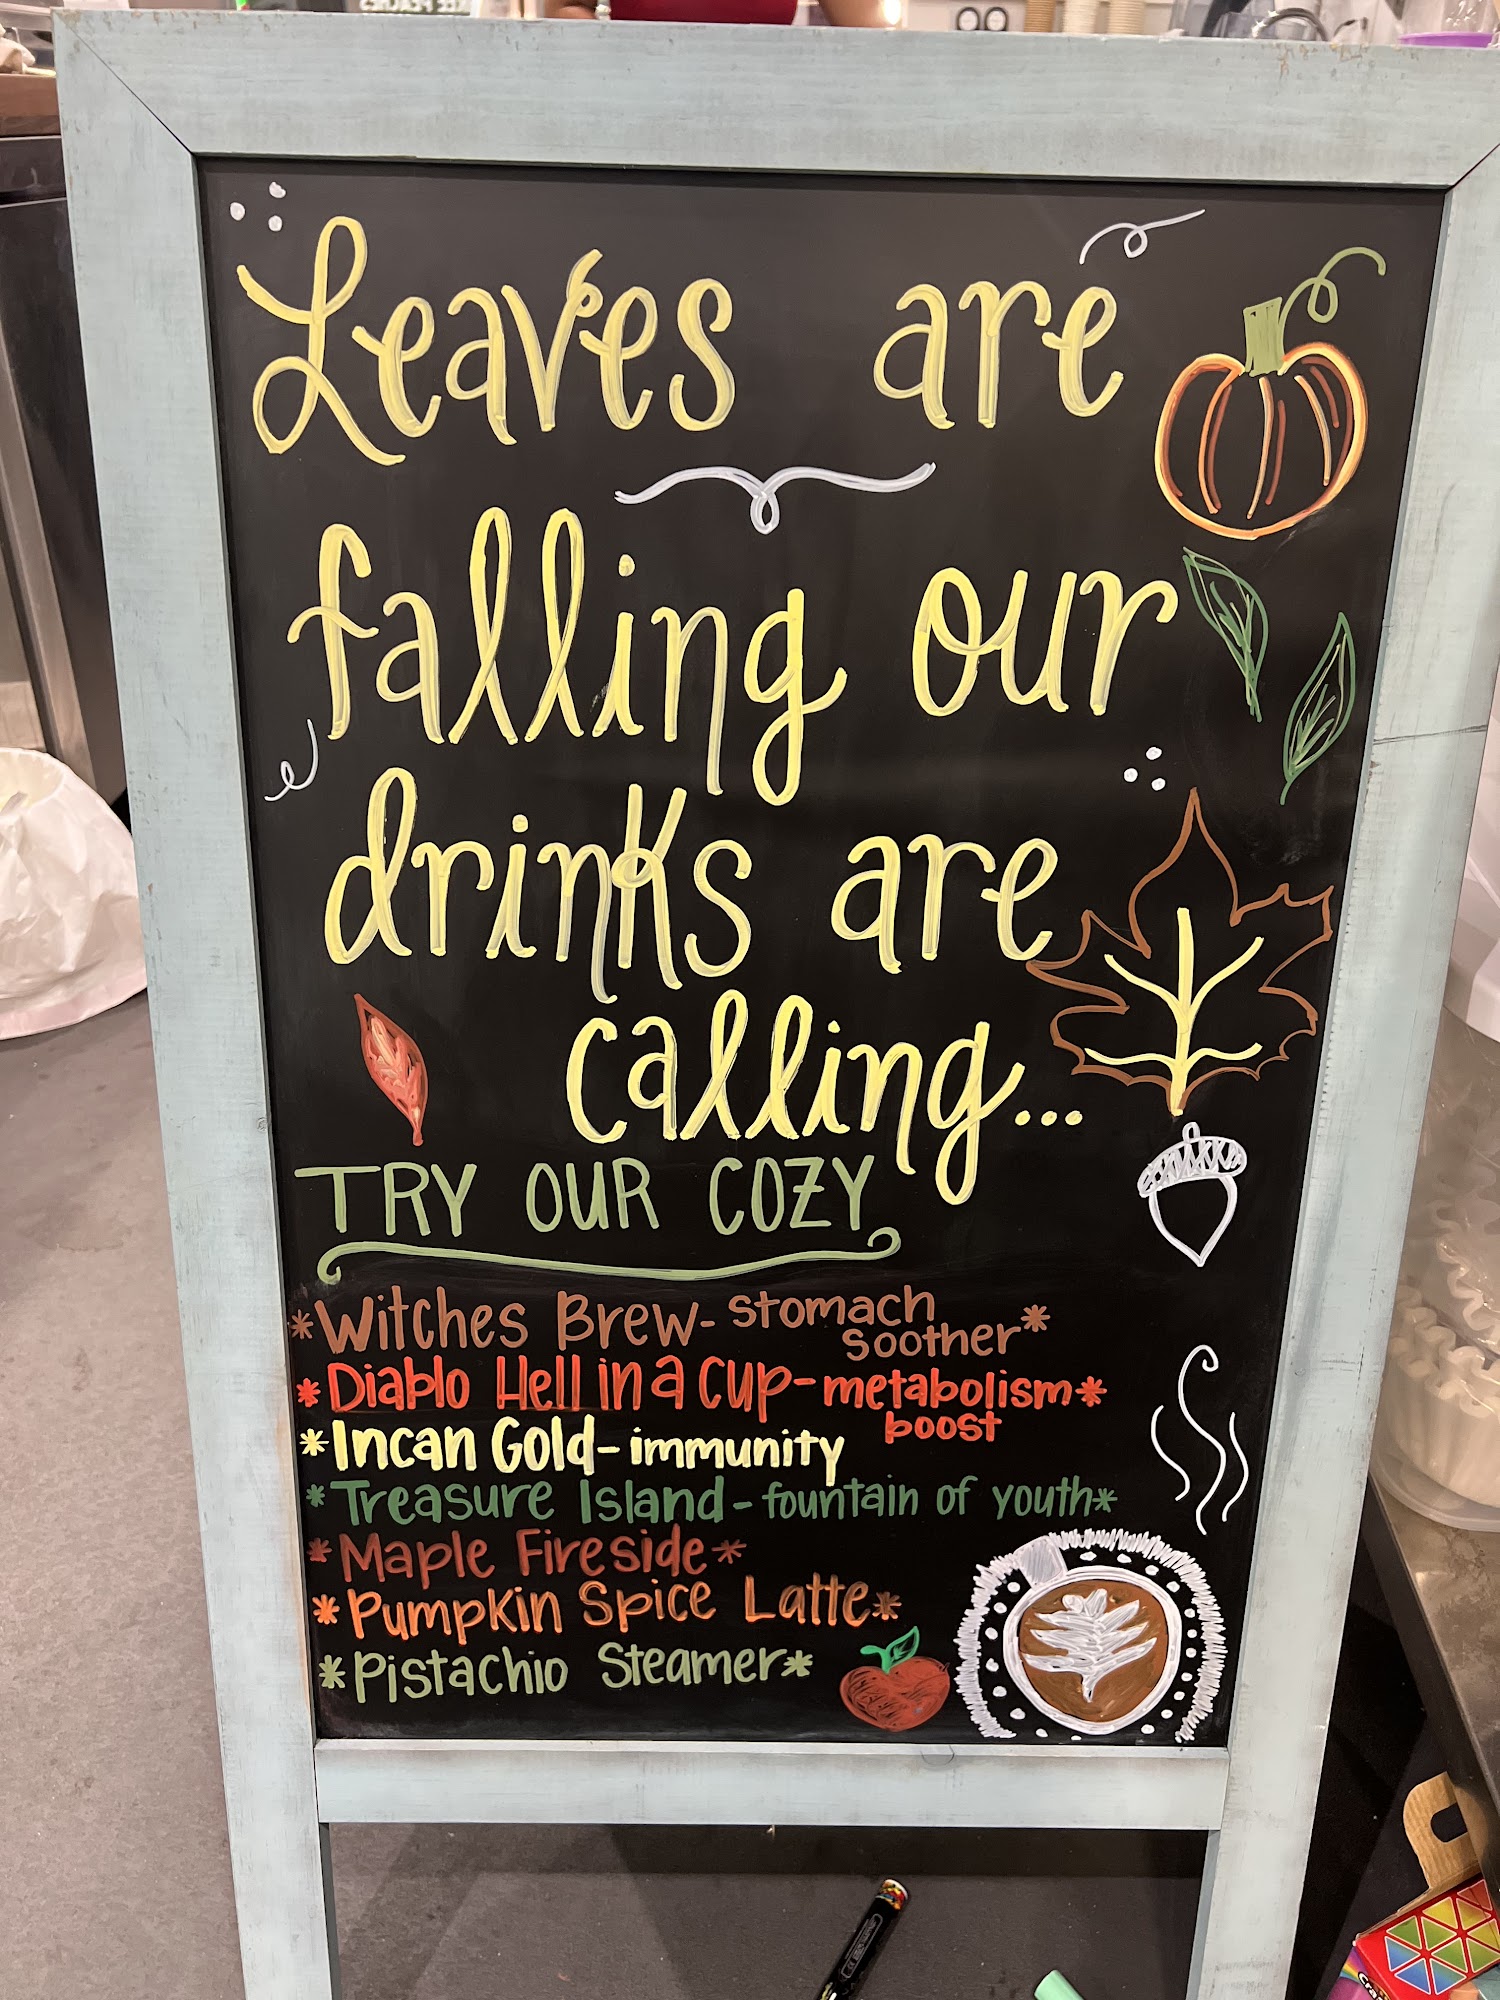 Leaves are
falling our
drinks are
calling...
TRY OUR COZY
*Witches Brew- stomach
soother*
*Diablo Hell in a cup- metabolism*
boost
*Incan Gold- immunity
*Treasure Island - fountain of youth*
*Maple Fireside*
*Pumpkin Spice Latte*
*Pistachio Steamer*